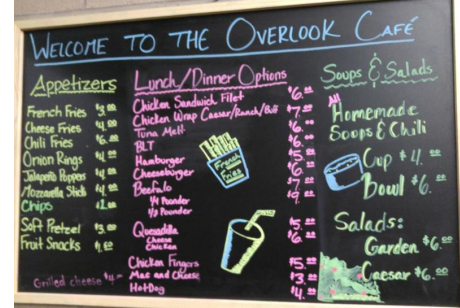 WELCOME TO THE OVERLOOK CAFÉ
Appetizers
French Fries $3.00
Cheese Fries $4.00
Chili Fries $6.00
Onion Rings $4.00
Jalapeño Poppers $4.00
Mozzarella Sticks $4.00
Chips
Soft Pretzel $3.00
Fruit Snacks
Grilled cheese $4.
Lunch/Dinner Options
Chicken Sandwich Filet $6.00
Chicken Wrap Caesar/Ranch/Buff $7.00
Tuna Melt $6.00
BLT $6.00
Hamburger $5.00
Cheeseburger $6.00
Beefalo
1/4 Pounder $7.00
1/3 Pounder
Quesadilla
Cheese $5.00
Chicken $6.00
Chicken Fingers $5.00
Mac and Cheese $3.00
Hot Dog $4.00
French Fries
Soups & Salads
All Homemade
Soops & Chili
Cup $4.00
Bowl $6.00
Salads:
Garden $6.00
Caesar $6.00